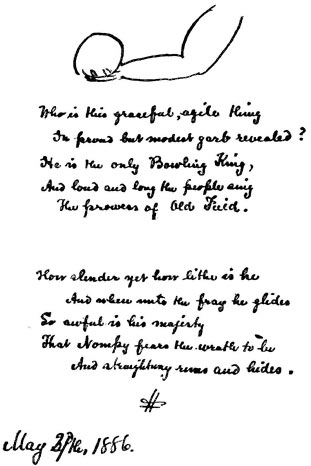 Who is this graceful, agile thing
In proud but modest garb revealed?
He is the only Bowling King,
And loud and long the people sing
The prowess of Old Fuid.
How slender yet how lithe is he
And when unto the fray he glides
So awful is his majesty
That Nompy fears the wrath to be
And straightway runs and hides.
May 27th, 1886.